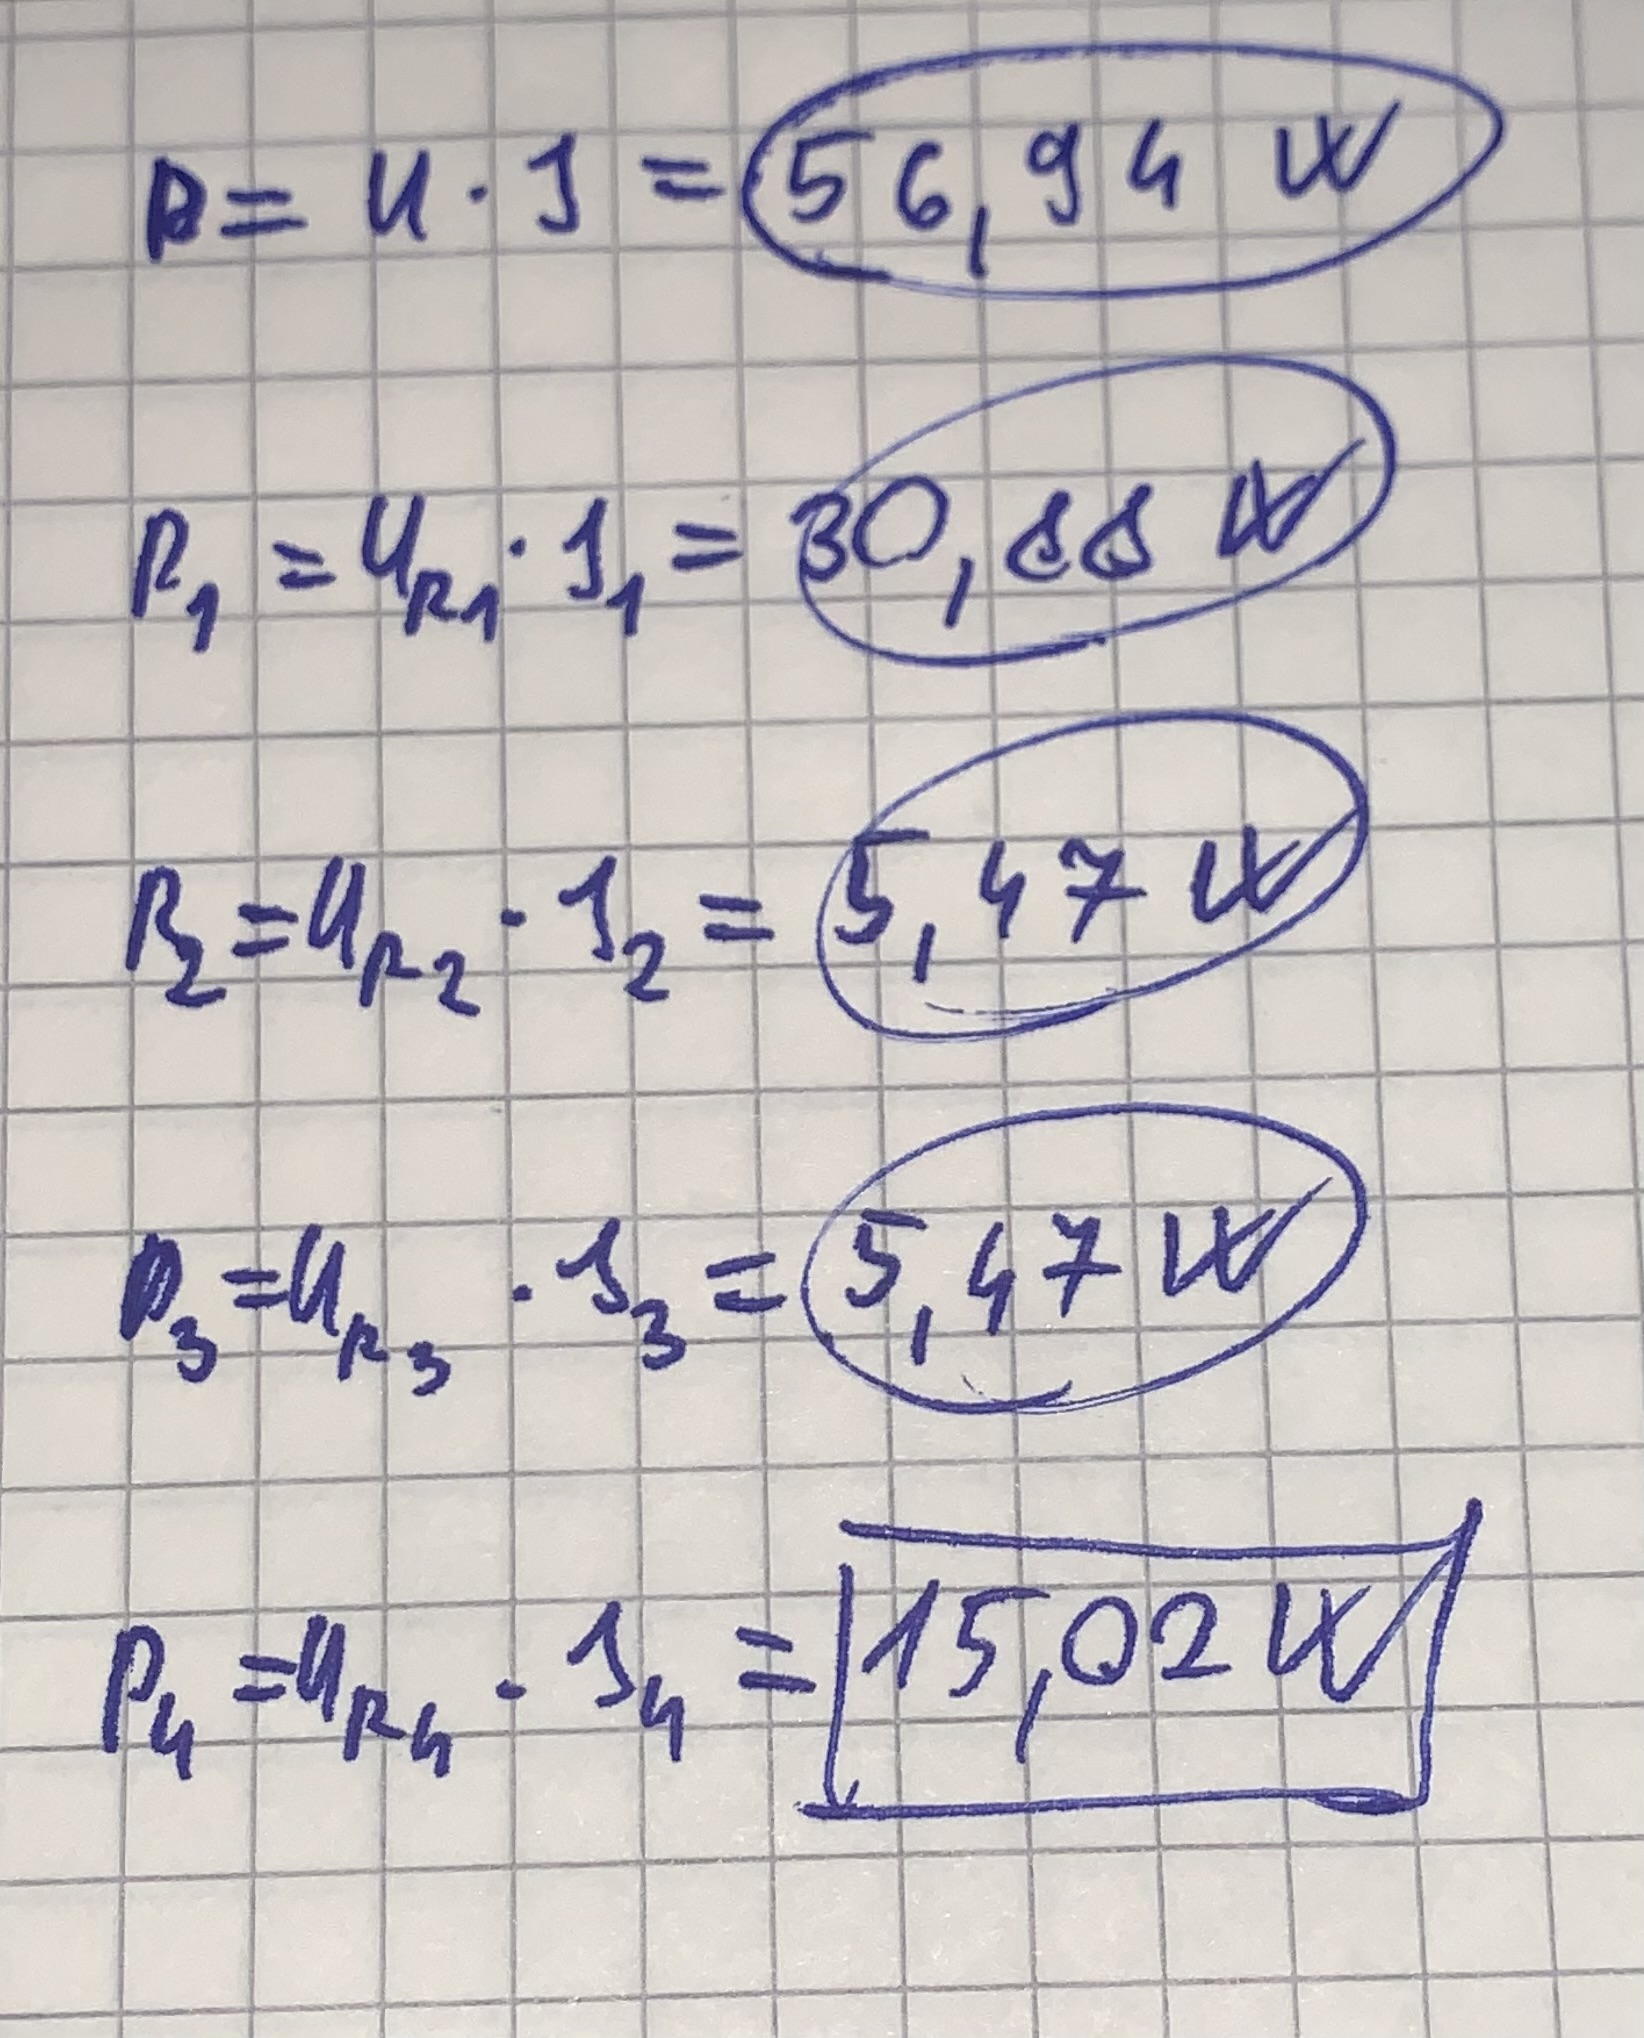 P = U · I = 56,94 W
P₁ = U_R1 · I₁ = 30,88 W
P₂ = U_R2 · I₂ = 5,47 W
P₃ = U_R3 · I₃ = 5,47 W
P₄ = U_R4 · I₄ = 15,02 W